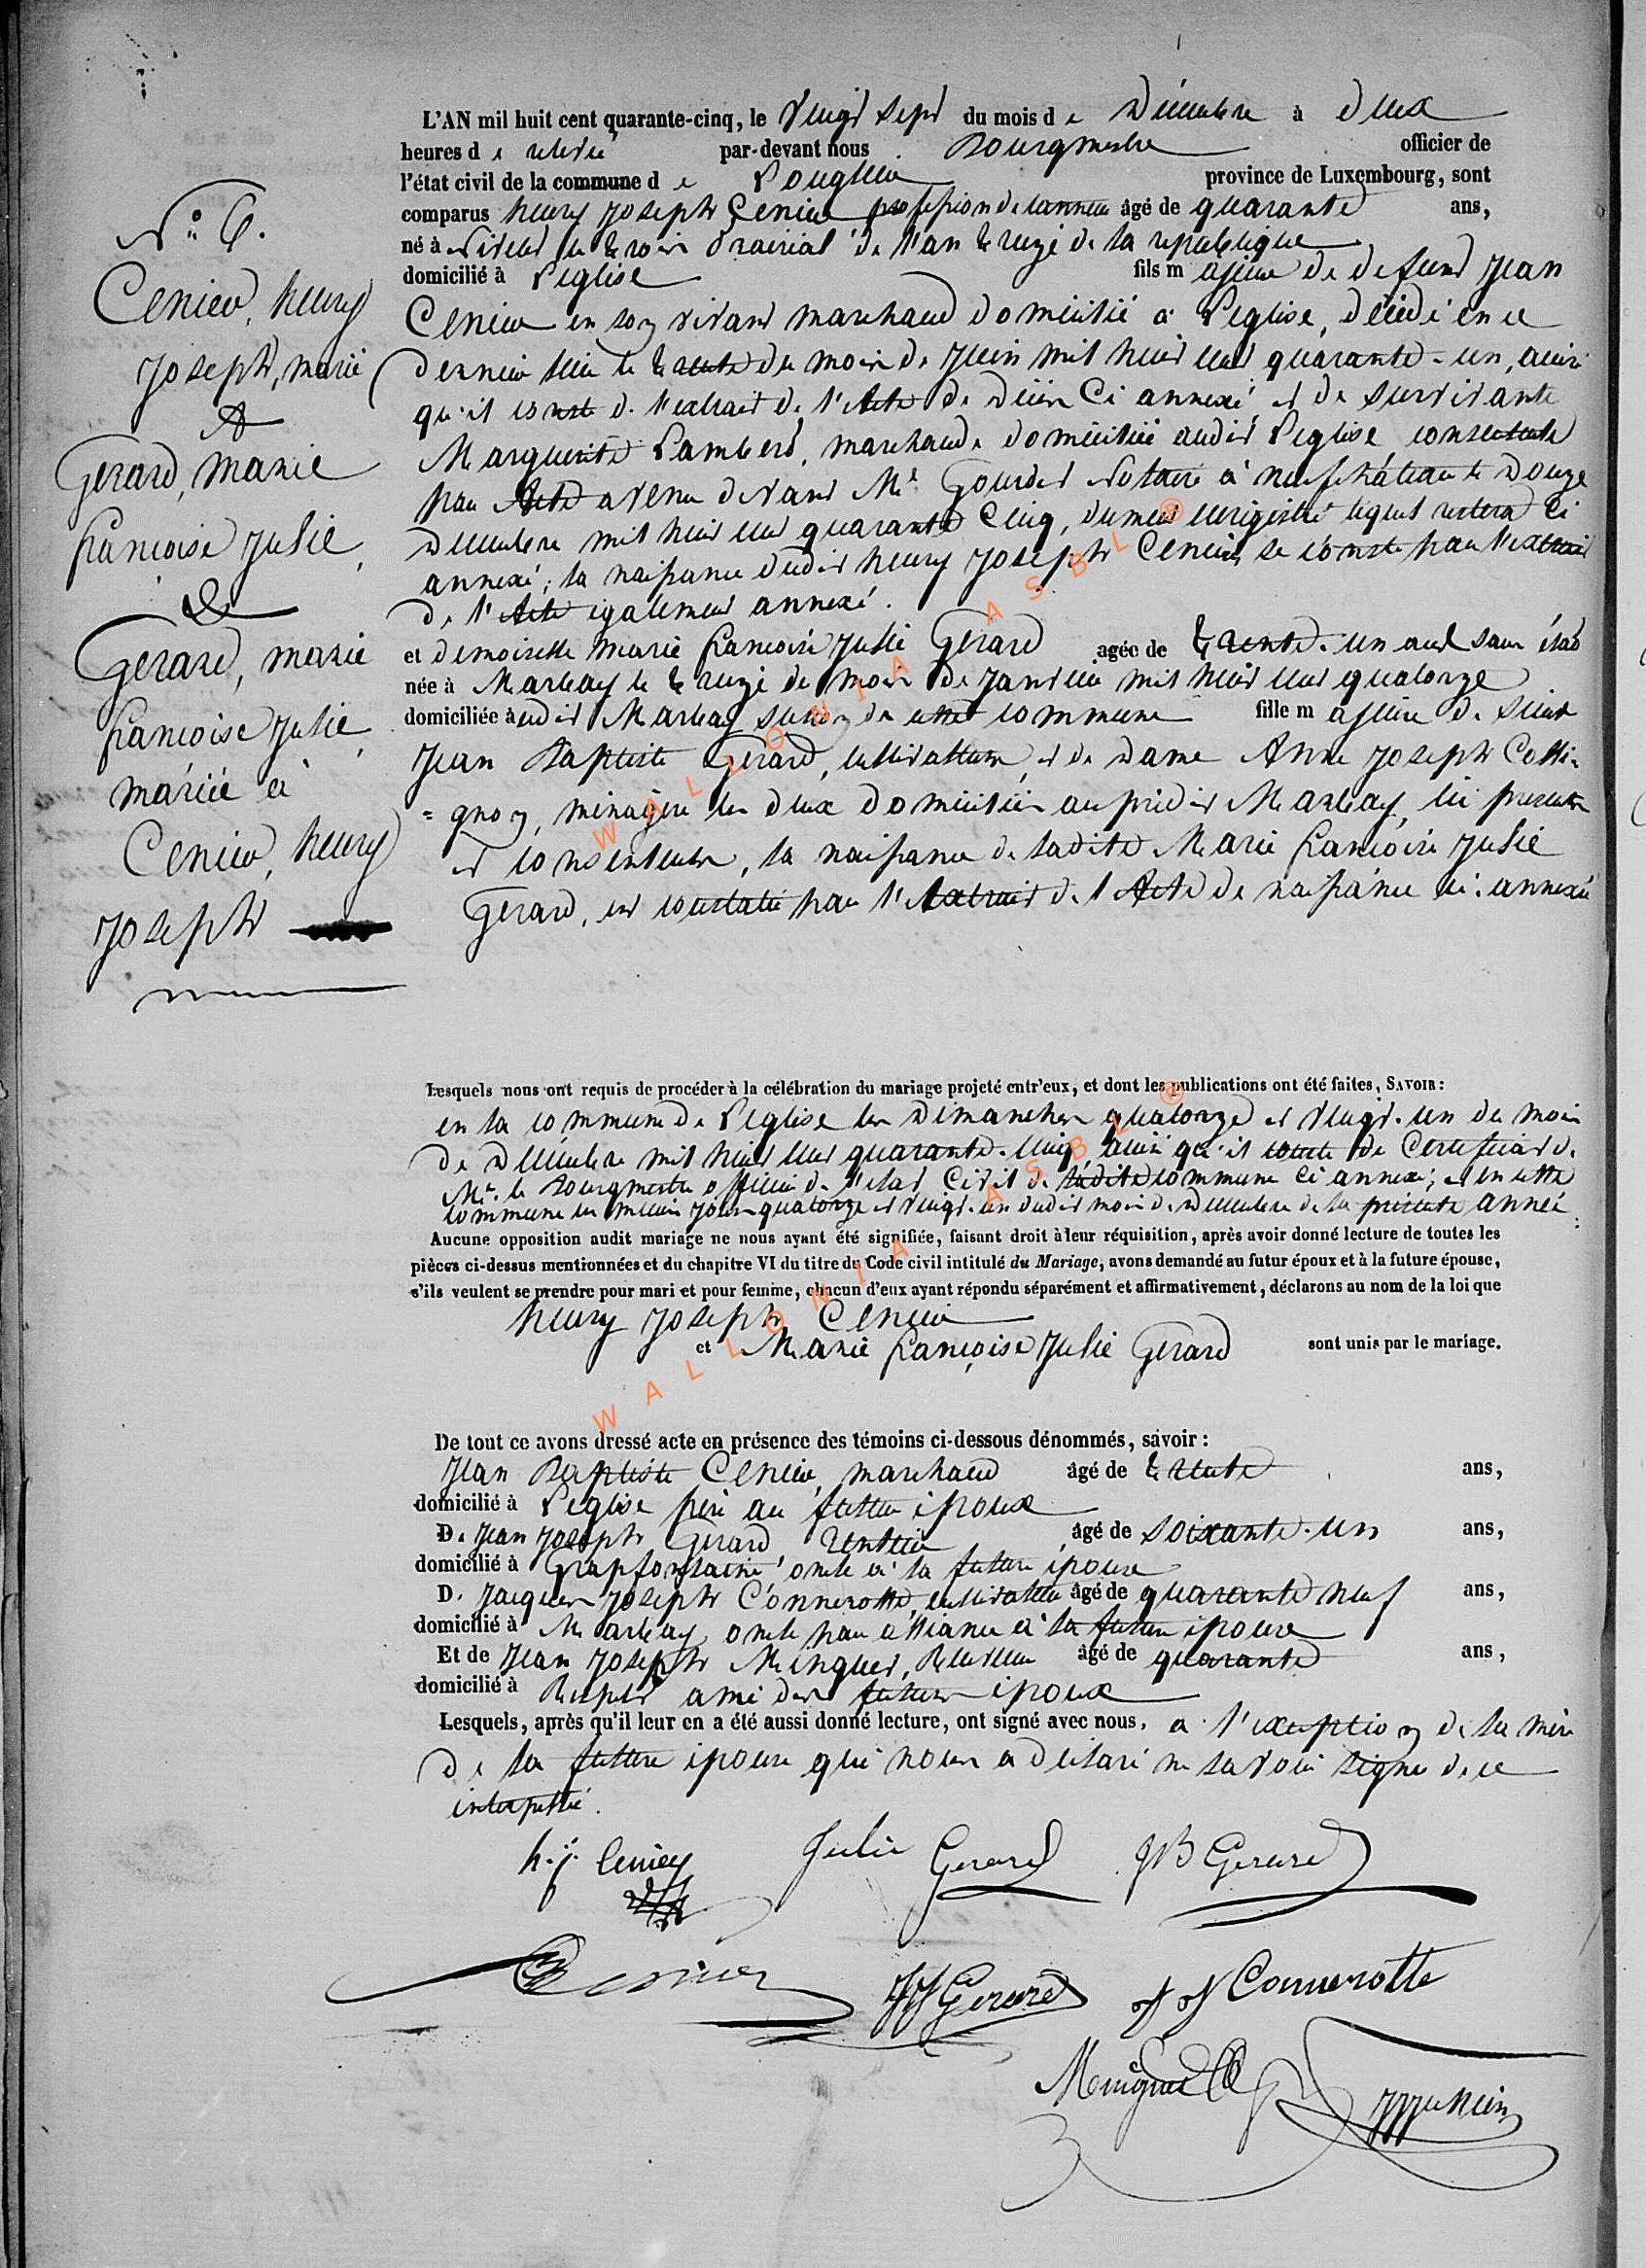 L'AN mil huit cent quarante-cinq, le vingt sept du mois de Décembre à deux
heures de relevée par-devant nous Bourgmestre officier de
l'état civil de la commune de Longlier province de Luxembourg, sont
comparus henry Joseph Cenier profession de tanneur âgé de quarante ans,
né à le trois prairial de l'an treize de la republique
domicilié à Léglise fils majeur de defunt Jean
Cenier en son vivant marchand domicilié à Léglise, décédé en ce
dernier lieu le trente du mois de Juin mil huit cent quarante-un, ainsi
qu'il conste de l'extrait de l'Acte de Décès ci annexé, et de survivante
Marguerite Lambert, marchande domiciliée audit Léglise consentante
par Acte avenu devant Me Gourdet Notaire à neufchâteau le Douze
Decembre mil huit cent quarante cinq, dument enrégistré lequel restera ci
annexé; la naissance dudit henry Joseph Cenier se conste par l'extrait
de l'Acte egalement annexé.
et demoiselle Marie francoise Julie Gerard agée de trente-un ans sans état
née à Marbay le treize du mois de Janvier mil huit cent quatorze
domiciliée audit Marbay section de cette commune fille majeure de sieur
Jean Baptiste Gerard, cultivateur, et de Dame Anne Joseph Colli-
=gnon, ménagère les deux domiciliés au prédit Marbay, ici presents
et consentants, la naissance de ladite Marie francoise Julie
Gerard, est constatée par l'Extrait de l'Acte de naissance ci-annexé
N° 6.
Cenier, henry
Joseph, marié
A
Gerard, Marie
francoise Julie,
&
Gerard, marie
francoise Julie,
mariée à
Cenier, henry
Joseph
Lesquels nous ont requis de procéder à la célébration du mariage projeté entr'eux, et dont les publications ont été faites, SAVOIR:
en la commune de Léglise les Dimanches quatorze et vingt-un du mois
de Decembre mil huit cent quarante-cinq, ainsi qu'il conste du Certificat de
Mr. le Bourgmestre officier de l'etat Civil de ladite commune ci annexé; et en cette
commune les mêmes jours quatorze et vingt-un dudit mois de Decembre de la présente année
Aucune opposition audit mariage ne nous ayant été signifiée, faisant droit à leur réquisition, après avoir donné lecture de toutes les
pièces ci-dessus mentionnées et du chapitre VI du titre du Code civil intitulé du Mariage, avons demandé au futur époux et à la future épouse,
s'ils veulent se prendre pour mari et pour femme, chacun d'eux ayant répondu séparément et affirmativement, déclarons au nom de la loi que
henry Joseph Cenier
et Marie françoise Julie Gerard sont unis par le mariage.
De tout ce avons dressé acte en présence des témoins ci-dessous dénommés, savoir:
Jean Baptiste Cenier, marchand âgé de trente ans,
domicilié à Léglise frère au futur époux
De Jean Joseph Gerard, Rentier âgé de soixante-un ans,
domicilié à Grapfontaine, oncle à la future épouse
De Jacques Joseph Connerotte, cultivateur âgé de quarante neuf ans,
domicilié à Marbay, oncle par alliance à la future épouse
Et de Jean Joseph Minguet, Receveur âgé de quarante ans,
domicilié à ami des futurs époux
Lesquels, après qu'il leur en a été aussi donné lecture, ont signé avec nous, a l'exception de la mère
de la future épouse qui nous a déclaré ne savoir signer de ce
interpellé.
h. j. Ceniez Julie Gerard JB Gerard
Cenier JJ Gerard J J Connerotte
Minguet
WALLONIA ASBL ®
WALLONIA ASBL ®